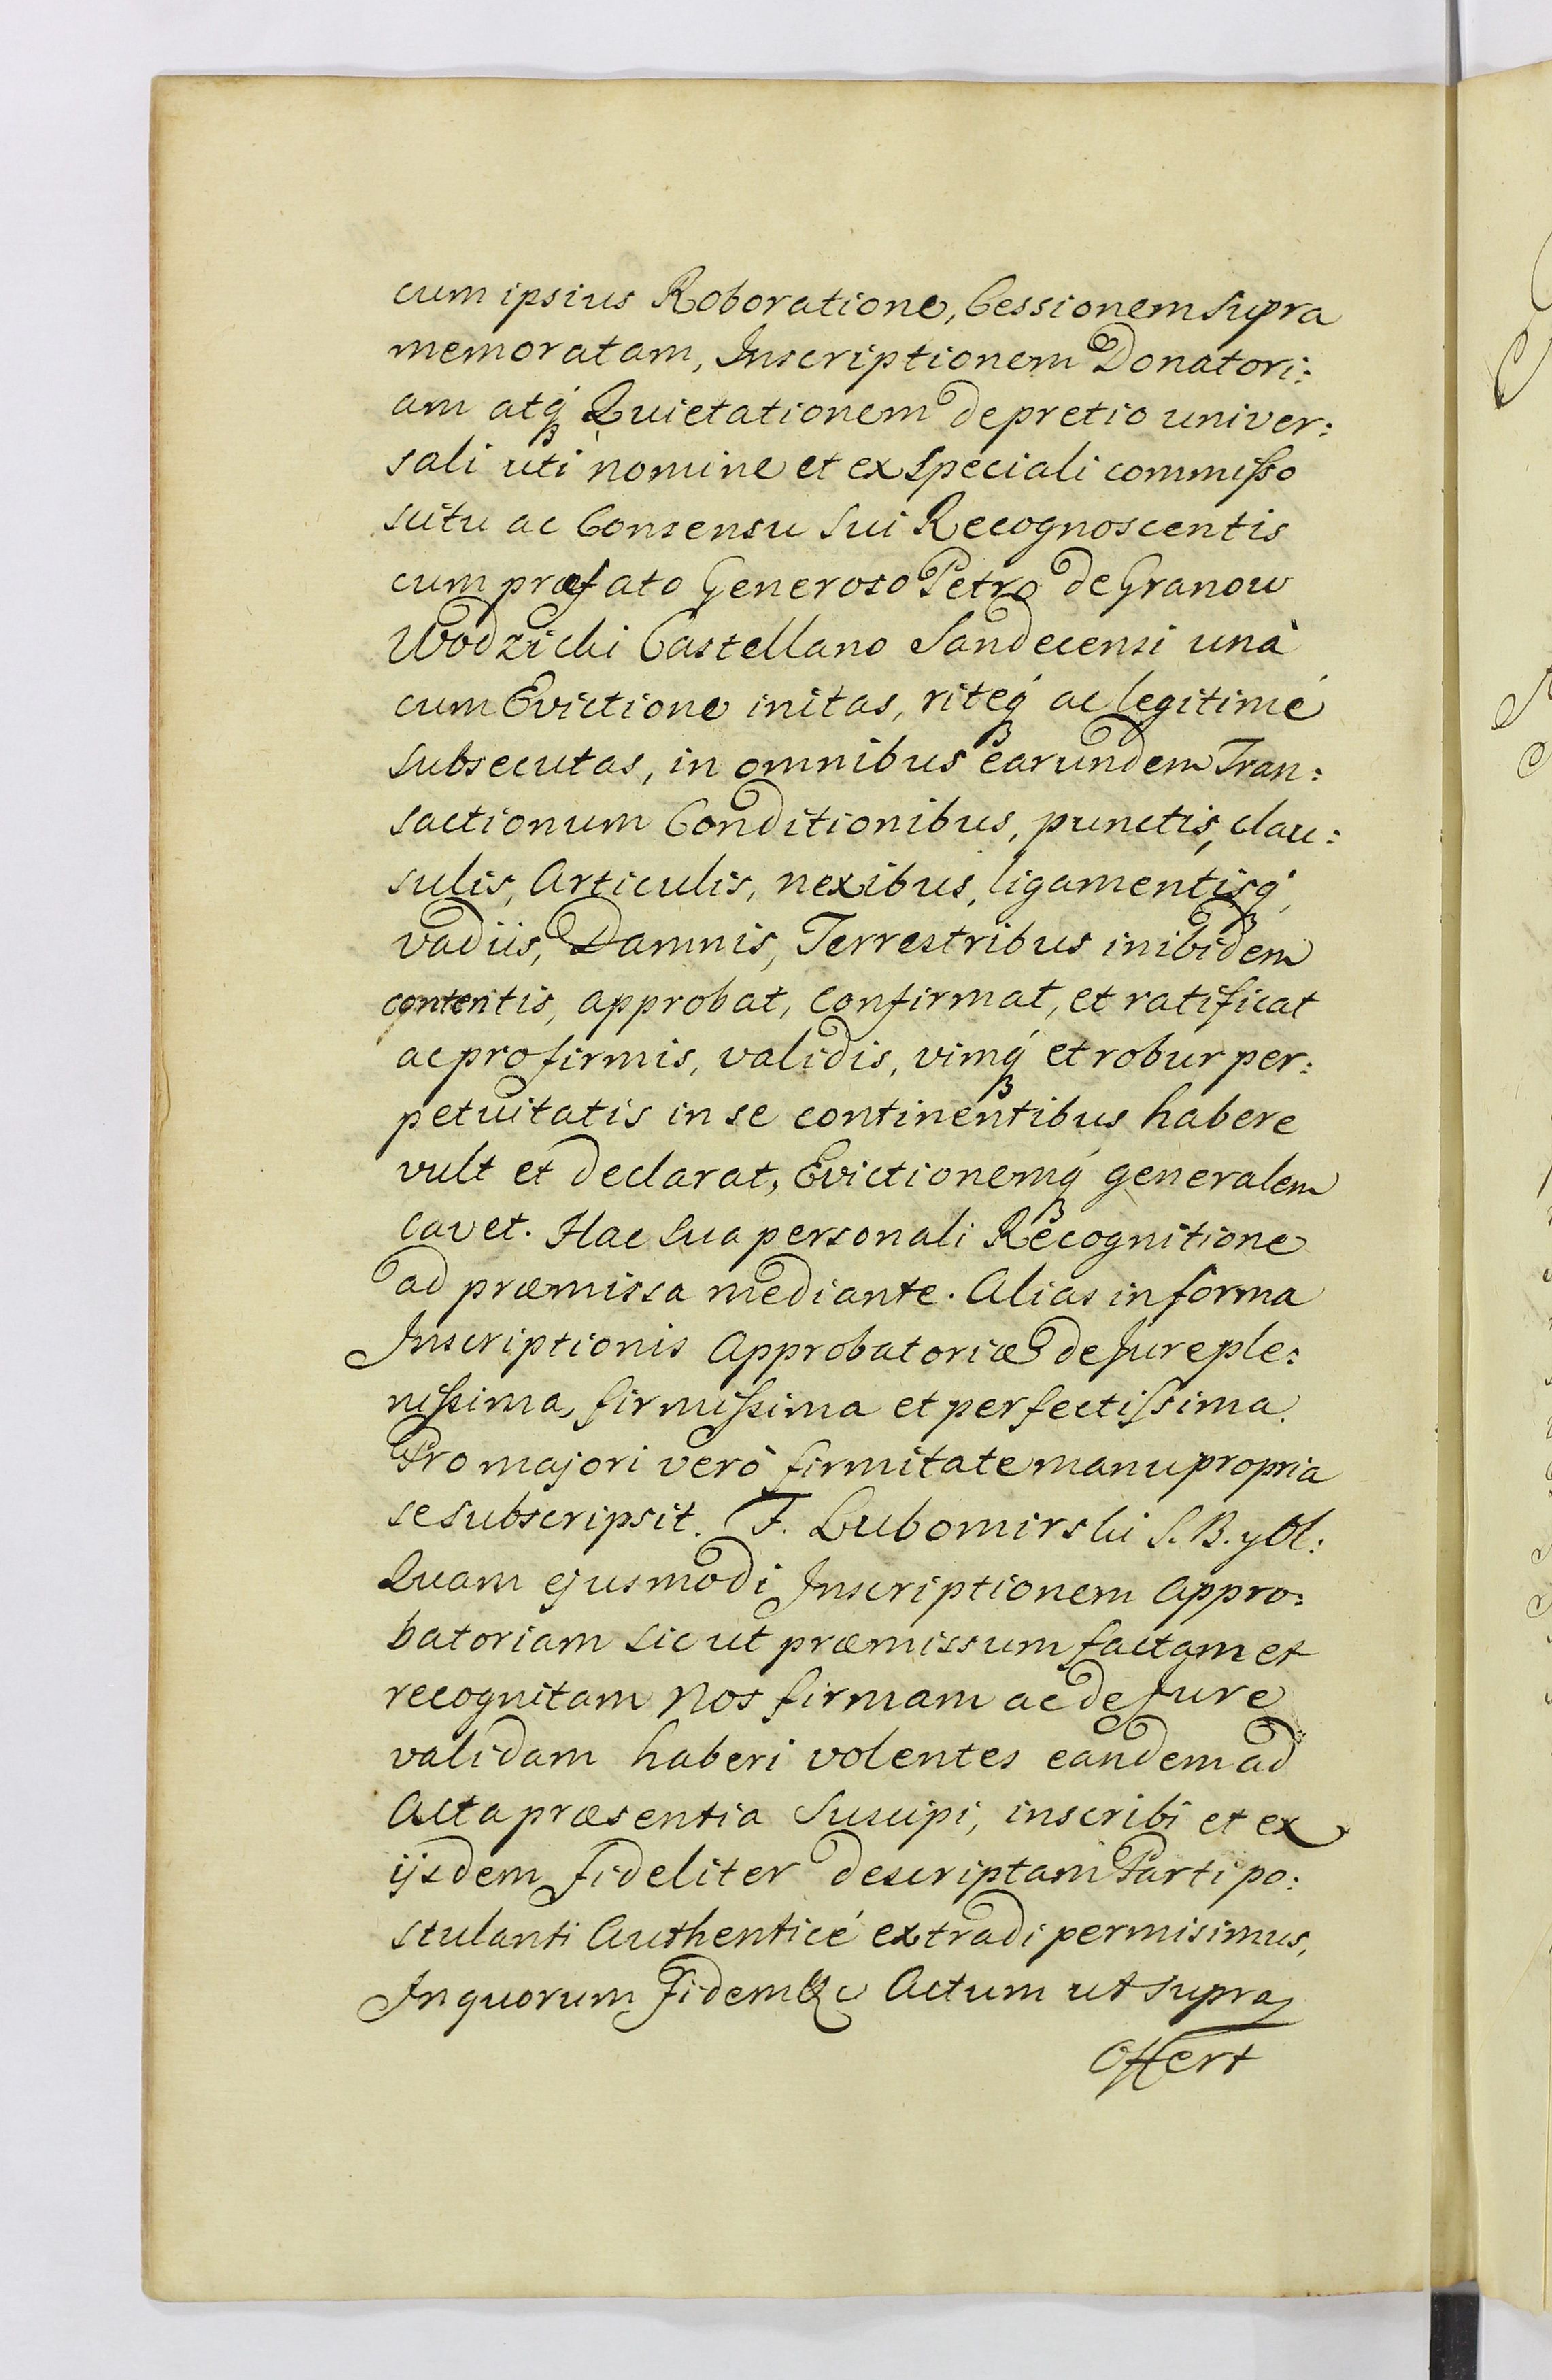 cum ipsius Roboratione, Cessionem supra
memoratam, Inscriptionem Donatori:
am atq́ Quietationem de pretio univer:
sali uti nomine et ex speciali commisso
scitu ac Consensu sui Recognoscentis
cum præfato Generoso Petro de Granow
Wodzicki Castellano Sandecensi unà
cum Evictione initas, riteq́ ac legitimé
subsecutas, in omnibus earundem Tran:
sactionum Conditionibus, punctis, clau:
sulis, Articulis, nexibus, ligamentisq́,
vadiis, Damnis, Terrestribus inibidem
contentis, approbat, confirmat, et ratificat
ac pro firmis, validis, vimq́ et robur per:
petuitatis in se continentibus habere
vult et declarat, Evictionemq́ generalem
cavet. Hac sua personali Recognitione
ad præmissa mediante. Alias in forma
Inscriptionis Approbatoriæ de Jure ple:
nissima, firmissima et perfectissima.
Pro majori verò firmitate manu propria
se subscripsit. F. Lubomirski S. B. y Ol:
Quam ejusmodi Inscriptionem Appro:
batoriam sic ut præmissum factam et
recognitam Nos firmam ac de Jure
validam haberi volentes eandem ad
Acta præsentia suscipi, inscribi et ex
ijsdem fideliter descriptam Parti po:
stulanti Authenticé extradi permisimus,
In quorum Fidem &c Actum ut supra
Offert